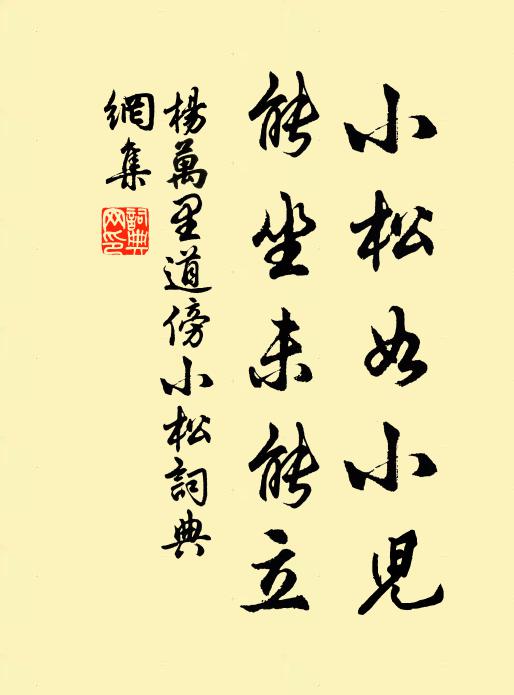 小松如小児
能坐未能立
楊萬里道傍小松詞典
網集
詞典
网印